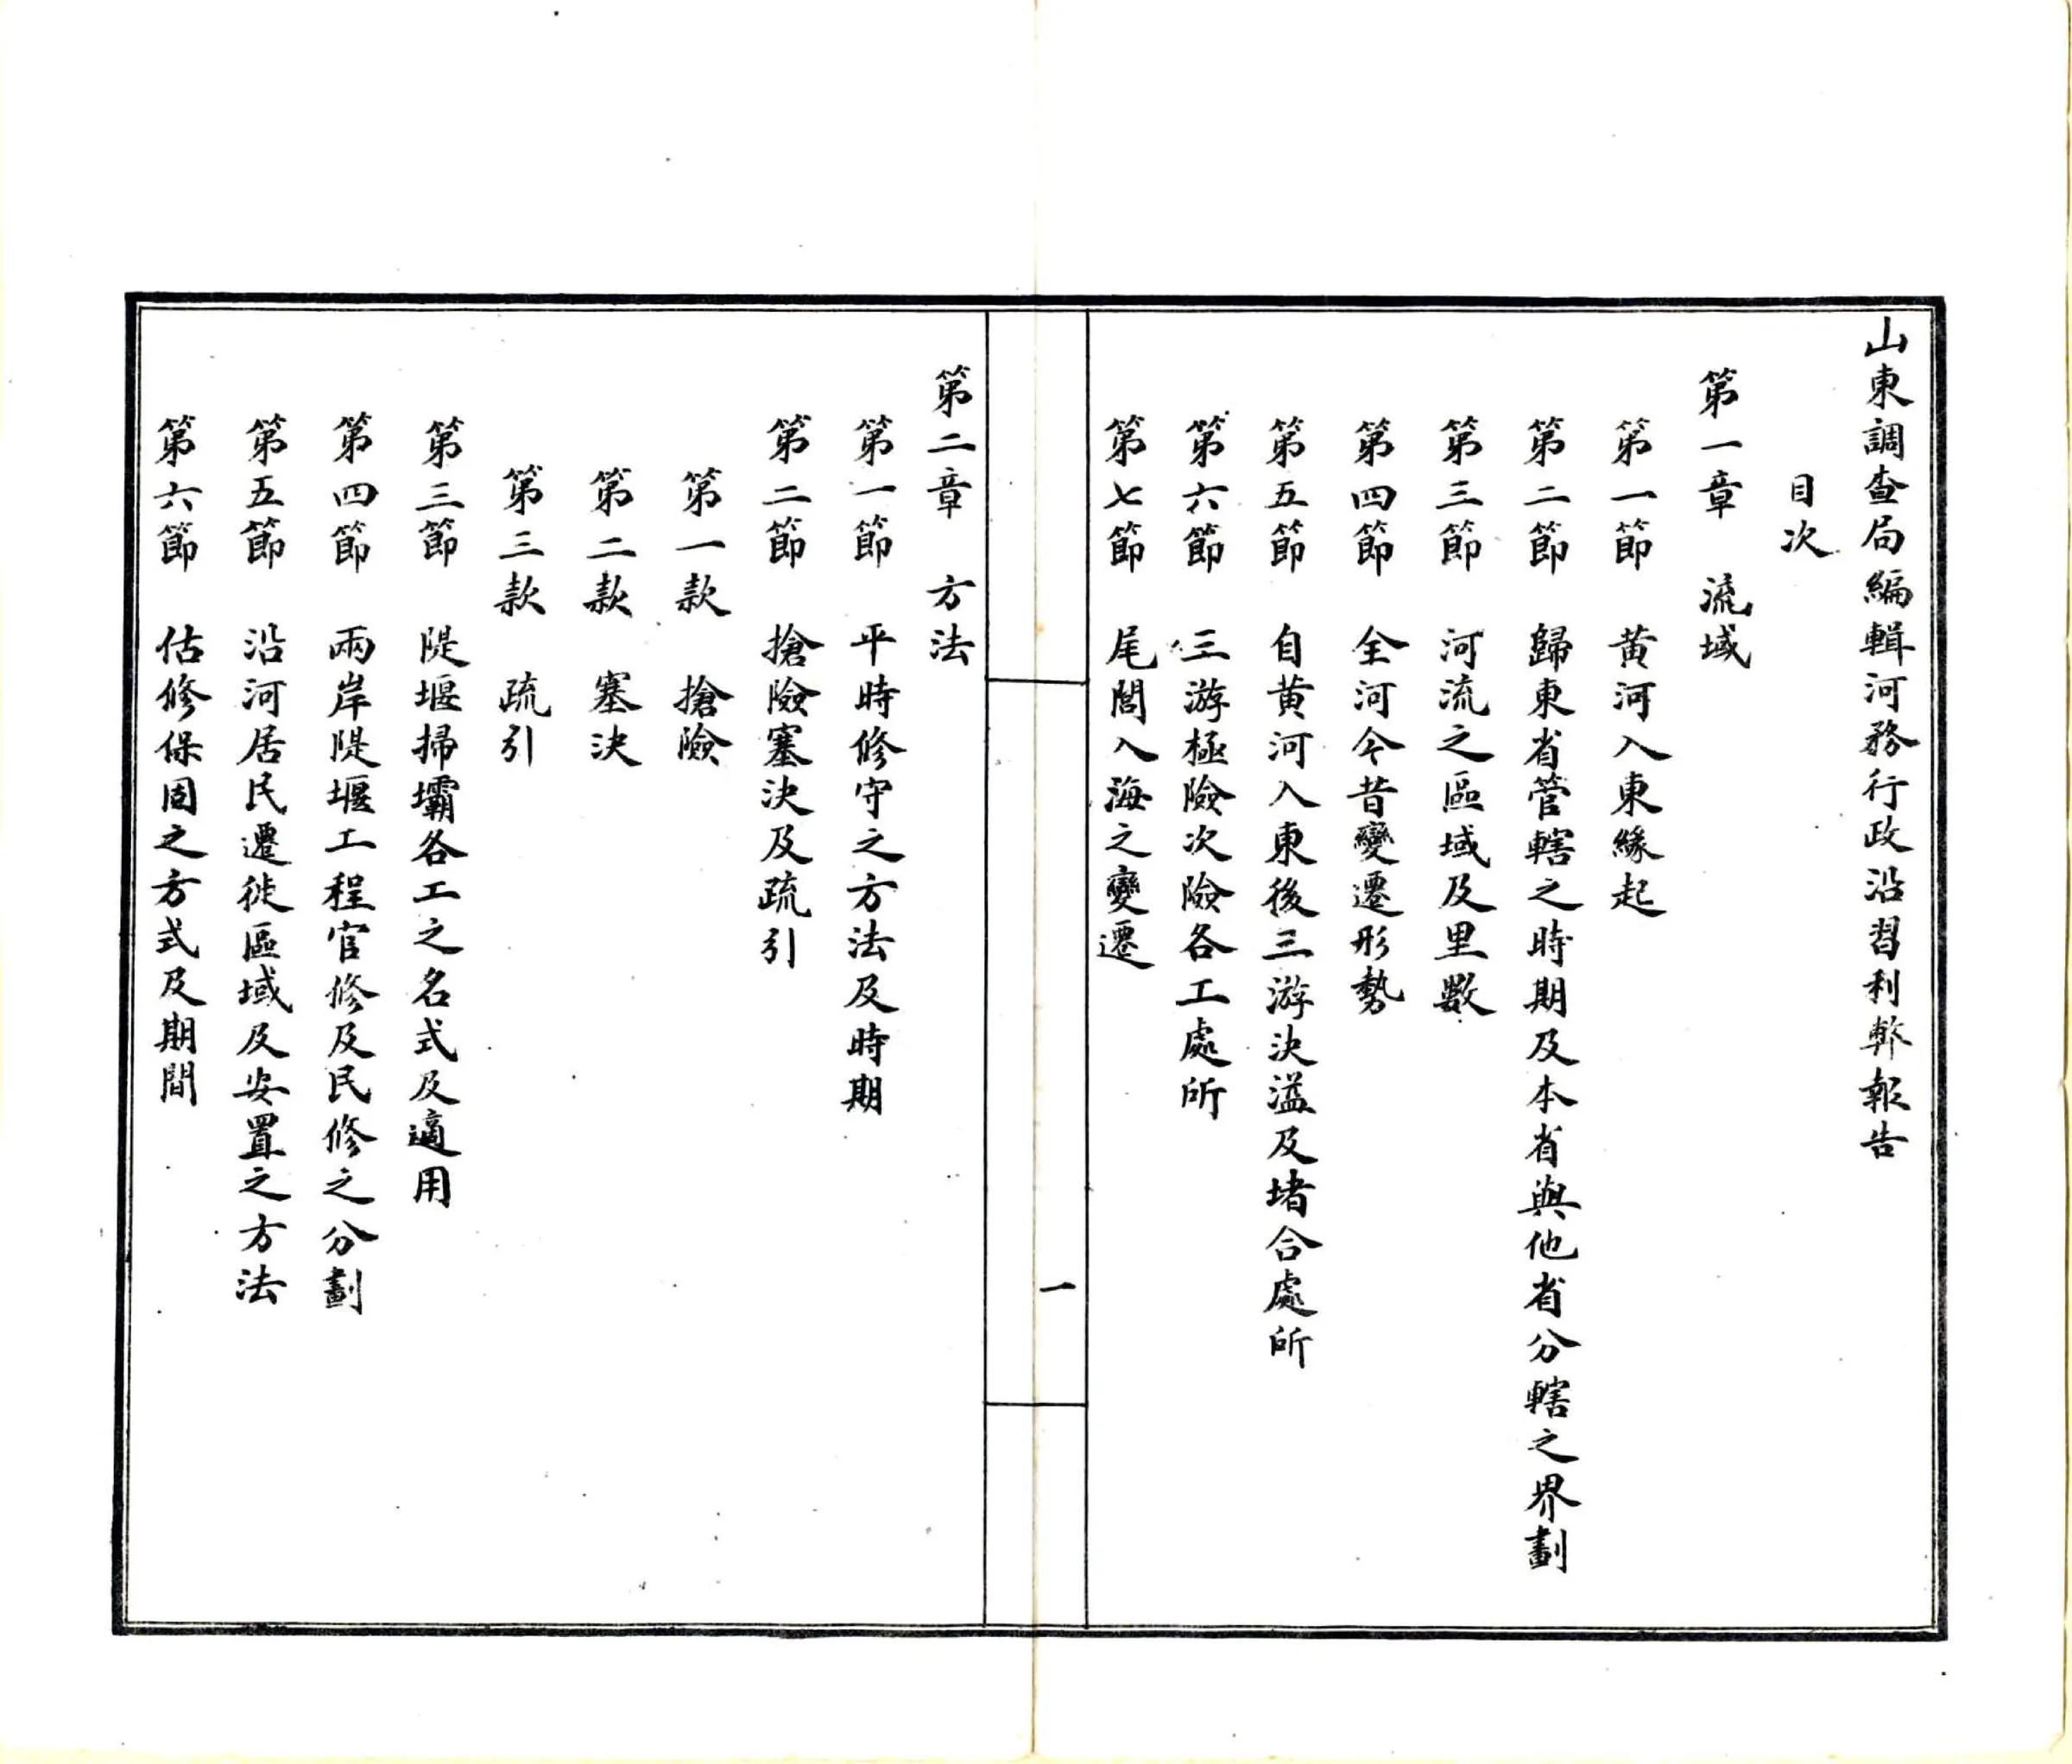 山東調查局編輯河務行政沿習利弊報告
目次
第一章　流域
第一節　黃河入東緣起
第二節　歸東省管轄之時期及本省與他省分轄之界劃
第三節　河流之區域及里數
第四節　全河今昔變遷形勢
第五節　自黃河入東後三游決溢及堵合處所
第六節　三游極險次險各工處所
第七節　尾閭入海之變遷
一
第二章　方法
第一節　平時修守之方法及時期
第二節　搶險塞決及疏引
第一款　搶險
第二款　塞決
第三款　疏引
第三節　隄堰掃壩各工之名式及適用
第四節　兩岸隄堰工程官修及民修之分劃
第五節　沿河居民遷徙區域及安置之方法
第六節　估修保固之方式及期間